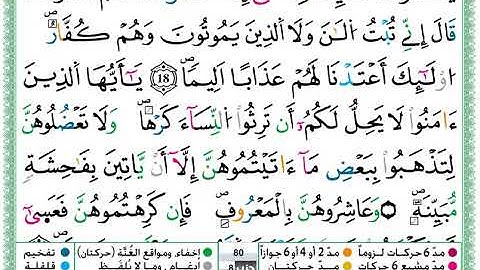 قَالَ إِنِّي تُبْتُ الَٰنَ وَلَا الَّذِينَ يَمُوتُونَ وَهُمْ كُفَّارٌ
اوْلَٰٓئِكَ أَعْتَدْنَا لَهُمْ عَذَابًا اَلِيمًا 18 يَٰٓأَيُّهَا الَّذِينَ
ءَامَنُوا لَا يَحِلُّ لَكُمُۥٓ أَن تَرِثُوا النِّسَآءَ كَرْهًا وَلَا تَعْضُلُوهُنَّ
لِتَذْهَبُوا بِبَعْضِ مَآ ءَاتَيْتُمُوهُنَّ إِلَّآ أَنْ يَّاتِينَ بِفَٰحِشَةٍ
مُّبَيِّنَةٍ وَعَاشِرُوهُنَّ بِالْمَعْرُوفِ فَإِن كَرِهْتُمُوهُنَّ فَعَسَىٰٓ
مدّ 6 حركات لزوماً مدّ 2 أو 4 أو 6 جوازاً 80 إخفاء، ومواقع الغُنَّة (حركتان) تفخيم
مدّ مشبع 6 حركات مدّ حركتان إدغام، وما لا يُلفَظ قلقلة